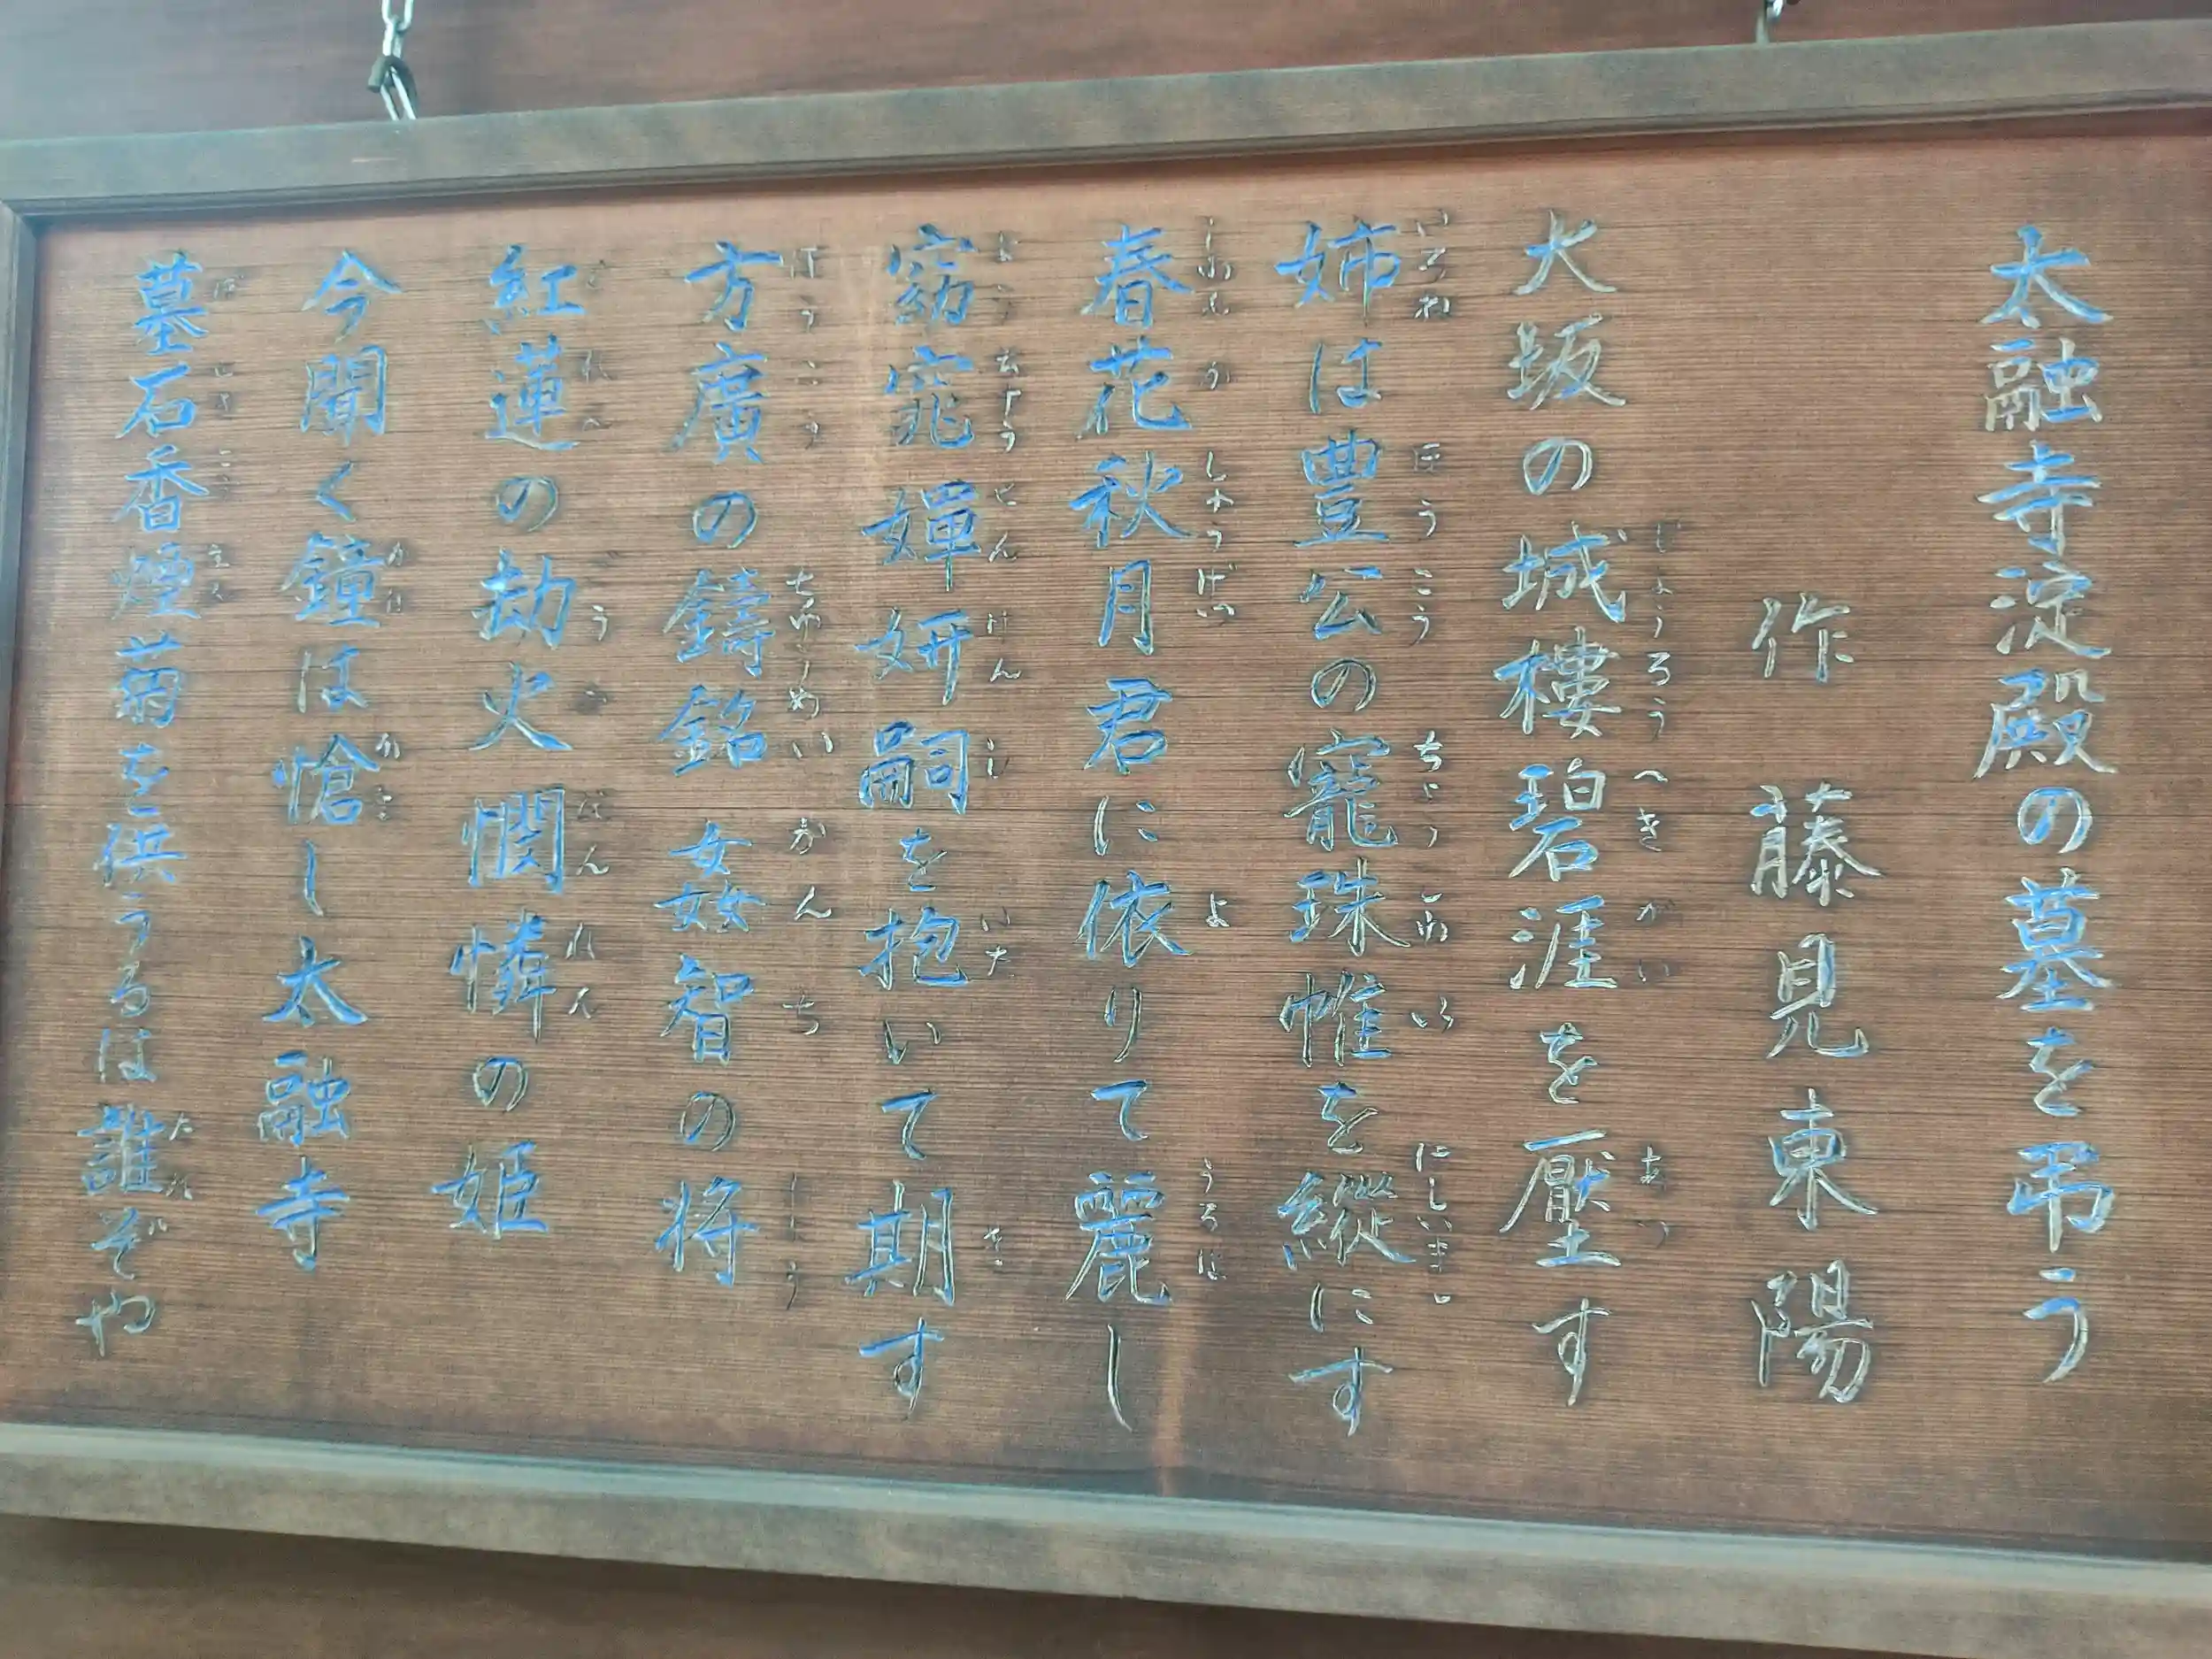 太融寺淀殿の墓を弔う
作 藤見東陽
大坂の城樓碧涯を壓す
姉は豊公の寵珠帷を縱にす
春花秋月君に依りて麗し
窈窕嬋妍嗣を抱いて期す
方廣の鑄銘姦智の将
紅蓮の劫火憫憐の姫
今聞く鐘は愴し太融寺
墓石香煙菊を供うるは誰ぞや